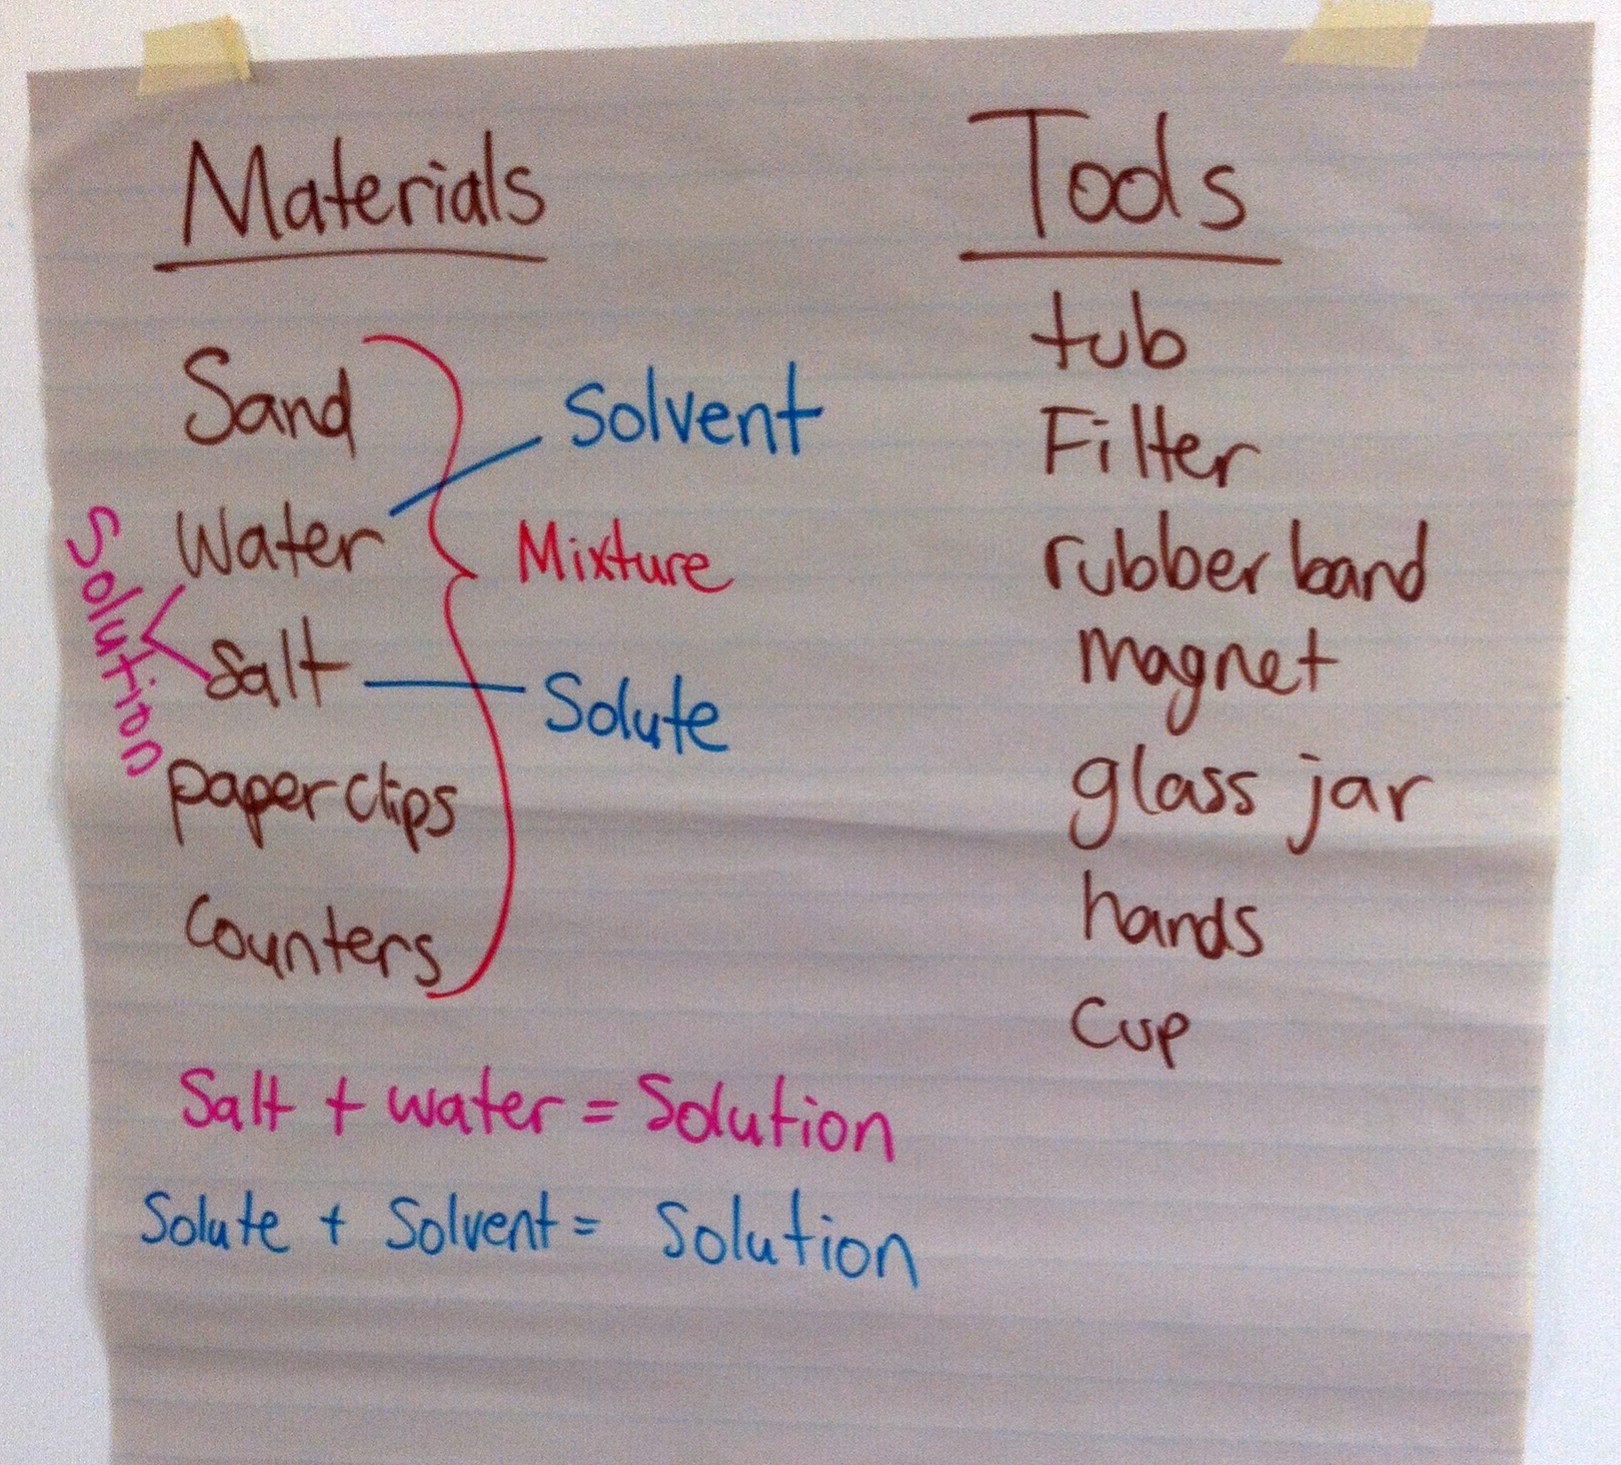 Materials
Sand
Solvent
Water
Mixture
Solution
Salt
Solute
paperclips
Counters
Salt + water = Solution
Solute + Solvent = Solution
Tools
tub
Filter
rubber band
magnet
glass jar
hands
Cup